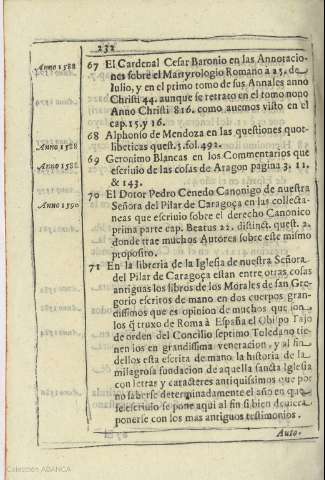 232
Anno 1588 67 El Cardenal Cesar Baronio en las Annotacio-
nes sobre el Martyrologio Romano à 25. de
Iulio, y en el primo tomo de sus Annales anno
Christi 44. aunque se retrato en el tomo nono
Anno Christi 816. como auemos visto en el
cap. 15. y 16.
Anno 1588 68 Alphonso de Mendoza en las questiones quot-
libeticas quest. 5. fol. 492.
Anno 1588 69 Geronimo Blancas en los Commentarios que
escriuio de las cosas de Aragon pagina 3. 11.
& 143.
Anno 1590 70 El Dotor Pedro Cenedo Canonigo de nuestra
Señora del Pilar de Caragoça en las collecta-
neas que escriuio sobre el derecho Canonico
prima parte cap. Beatus 22. distinct. quest. 2.
donde trae muchos Autores sobre este mismo
proposito.
71 En la libreria de la Iglesia de nuestra Señora
del Pilar de Caragoça estan entre otras cosas
antiguas los libros de los Morales de san Gre-
gorio escritos de mano en dos cuerpos gran-
dissimos que es opinion de muchos que son
los q̃ truxo de Roma à España el Obispo Tajo
de orden del Concilio septimo Toledano tie-
nen los en grandissima veneracion, y al fin
dellos esta escrita de mano la historia de la
milagrosa fundacion de aquella sancta Iglesia
con letras y caracteres antiquissimos que por
no saberse determinadamente el año en que
se escriuio se pone aqui al fin si bien deuiera
ponerse con los mas antiguos testimonios.
Auto-
Colección ABANCA